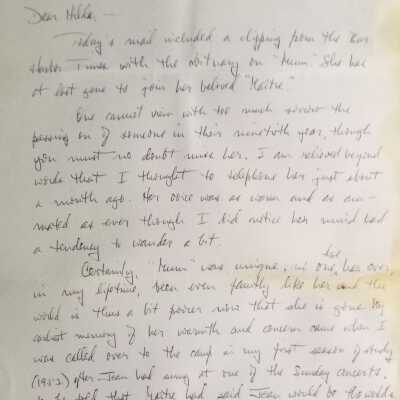 Dear Hilda —
Today's mail included a clipping from the Bar
Harbor Times with the obituary on "Mum." She had
at last gone to join her beloved "Maitre."
One cannot view with too much sorrow the
passing on of someone in their ninetieth year, though
you must no doubt miss her. I am relieved beyond
words that I thought to telephone her just about
a month ago. Her voice was as warm and as ani-
mated as ever though I did notice her mind had
a tendency to wander a bit.
Certainly, "Mum" was unique,
in my lifetime, been even faintly like her and the
world is thus a bit poorer now that she is gone. My
earliest memory of her warmth and concern came when I
was called over to the camp in my first season of study
(1952) after Jean had sung at one of the Sunday concerts.
told that Maitre had said Jean would be the world's